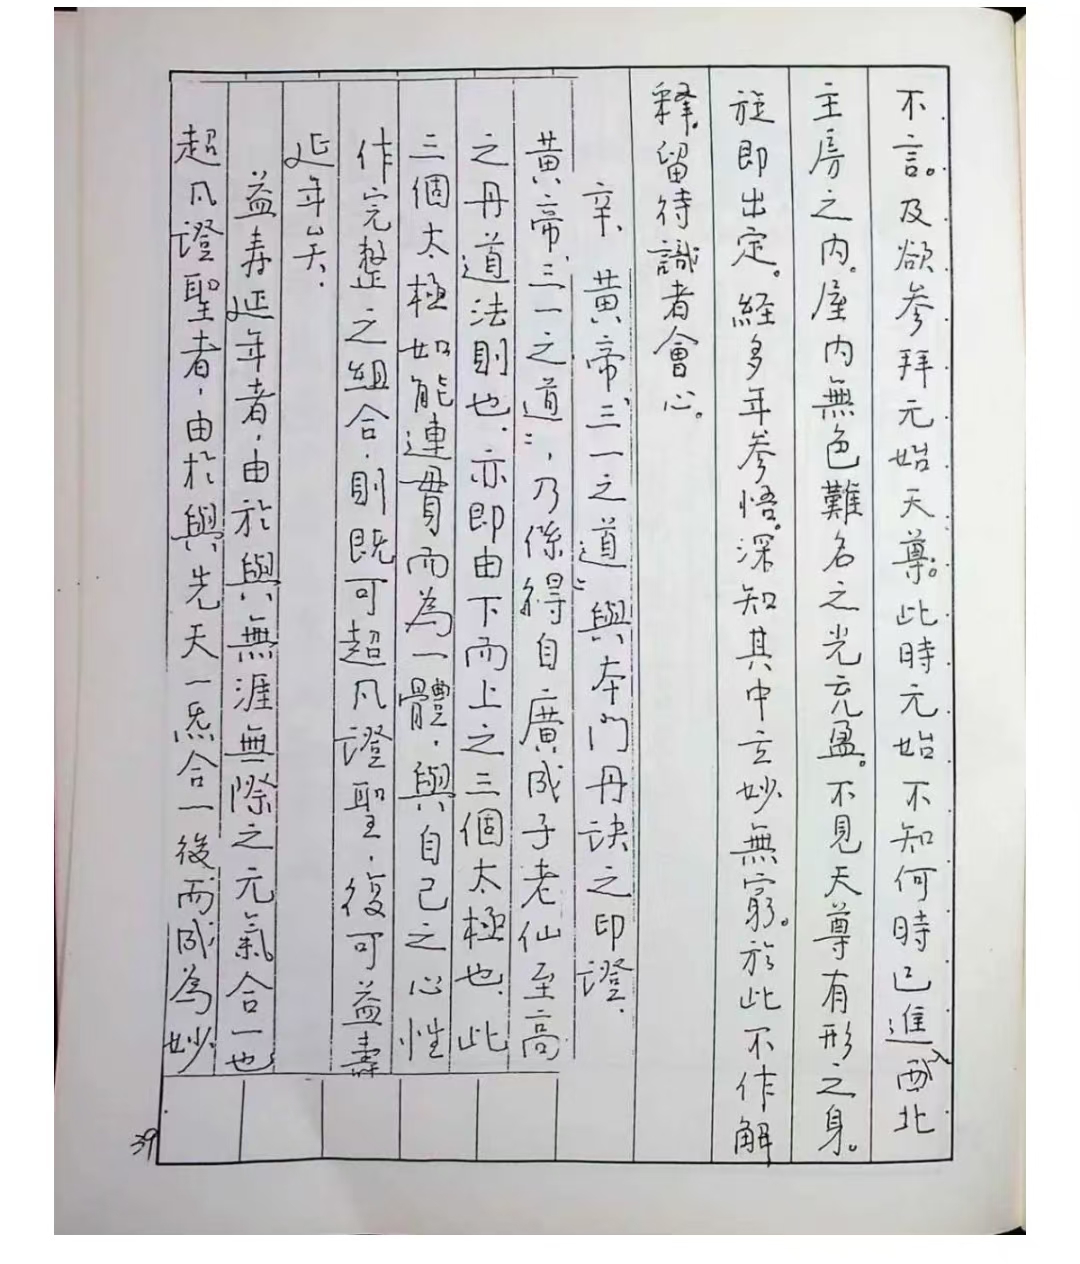 不言。及欲参拜元始天尊。此時元始不知何時已進入西北
主房之內。屋內無色難名之光充盈。不見天尊有形之身。
旋即出定。経多年参悟。深知其中玄妙無窮。於此不作解
釋。留待識者會心。
辛、黃帝“三一之道”與本門丹訣之印證、
黃帝“三一之道”，乃係得自廣成子老仙至高
之丹道法則也、亦即由下而上之三個太極也、此
三個太極如能連貫而為一體，與自己之心性
作完整之組合，則既可超凡證聖，復可益壽
延年矣、
益寿延年者，由於與無涯無際之元氣合一也
超凡證聖者，由於與先天一炁合一後而成為妙
39